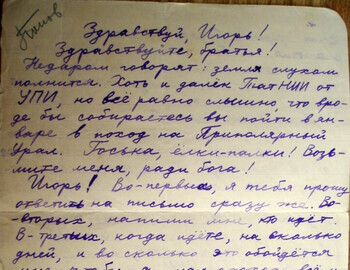 Здравствуй, Игорь!
Здравствуйте, братья!
Недаром говорят: земля слухом
полнится. Хоть и далёк ТатНИИ от
УПИ, но всё равно слышно, что вро-
де бы собираетесь вы пойти в ян-
варе в поход на Приполярный
Урал. Госька, ёлки-палки! Возь-
мите меня, ради бога!
Игорь! Во-первых, я тебя прошу
ответить на письмо сразу же. Во-
вторых, напиши мне, кто идёт.
В-третьих, когда идёте, на сколько
дней, и во сколько это обойдётся